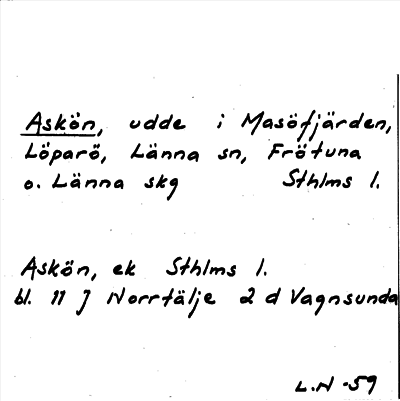 Askön, udde i Masöfjärden,
Löparö, Länna sn, Frötuna
o. Länna skg Sthlms l.
Askön, ek Sthlms l.
bl. 11 J Norrtälje 2 d Vagnsunda
L.N -59